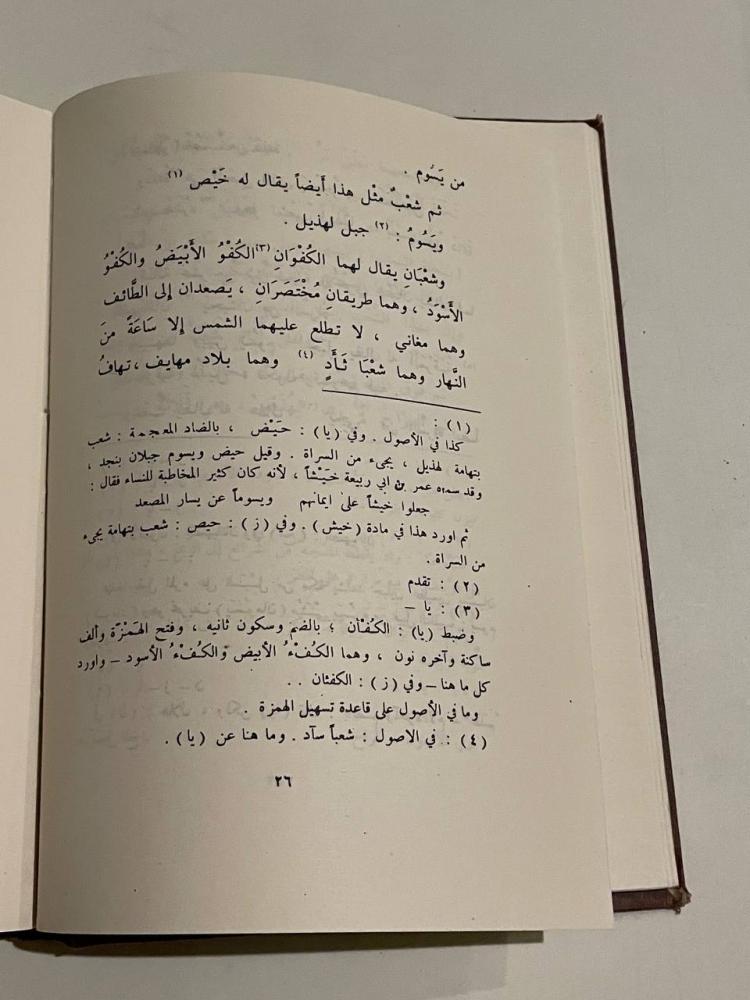 من يَسُوم .
ثم شعْبٌ مثْل هذا أَيضاً يقال له خَيْص (١)
ويَسُومُ : (٢) جبل لهذيل .
وشعْبَانِ يقال لهما الكُفْوَانِ (٣) الكُفْوُ الأَبْيَضُ والكُفْوُ
الأَسْوَدُ ، وهما طريقانِ مُخْتَصَرَانِ ، يَصعدان إلى الطَّائف
وهما مغاني ، لا تطلع عليهما الشمس إلا سَاعَةً منَ
النَّهار وهما شعْبَا ثَـأَدٍ (٤) وهما بلاد مهايف ، تهافُ
(١) :
كذا في الأصول . وفي (يا) : حَيَـْض ، بالضاد المعجمة : شعب
بتهامة لهذيل ، يجيء من السراة . وقيل حيض ويسوم جبلان بنجد ،
وقد سماه عمر بن ابي ربيعة خَيَـْشاً ، لأنه كان كثير المخاطبة للنساء فقال :
جعلوا خيشاً على ايمانهم ويسوماً عن يسار المصعد
ثم اورد هذا في مادة (خيش) . وفي ( ز ) : حيص : شعب بتهامة يجيء
من السراة .
(٢) : تقدم
(٣) : يا —
وضبط (يا) : الكُفْـَان ؛ بالضم وسكون ثانيه ، وفتح الهَمْزَة وألف
ساكنة وآخره نون ، وهما الكُفْءُ الأبيض والكُفْءُ الأسود — واورد
كل ما هنا — وفي ( ز ) : الكفئان . .
وما في الأصول على قاعدة تسهيل الهمزة .
(٤) : في الاصول : شعباً سآد . وما هنا عن (يا) .
٢٦